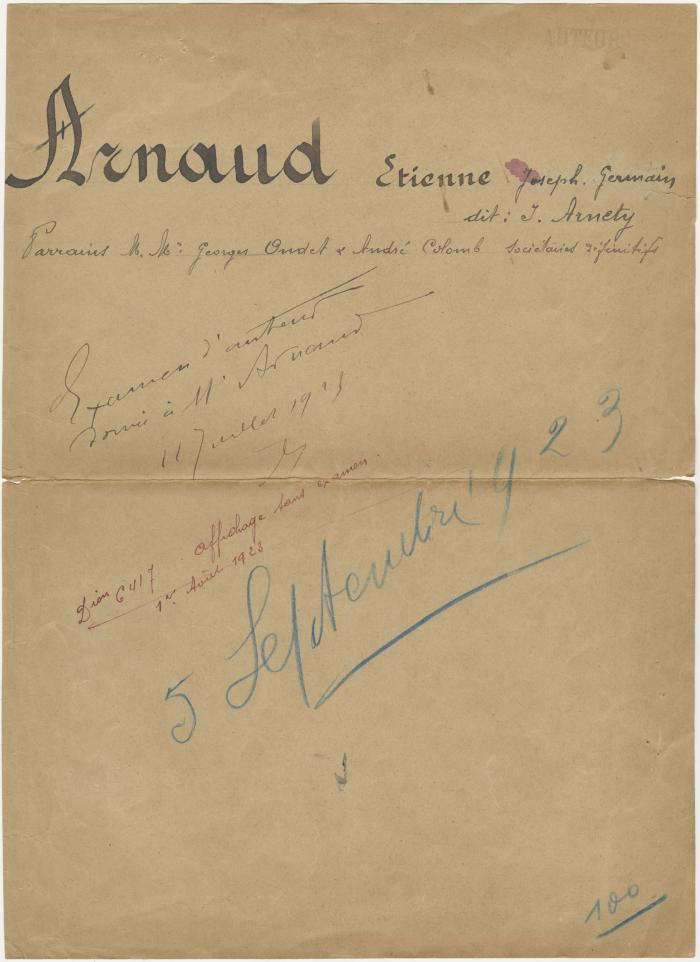 AUTEUR
Arnaud Etienne Joseph. Germain
dit: J. Arnety
Parrains M. Mrs Georges Ondet & André Colomb sociétaires définitifs
Examen d'auteur
donné à Mr Arnaud
11 Juillet 1923
affichage sans examen.
Dien 6417
1er Août 1923
5 Septembre 1923
100